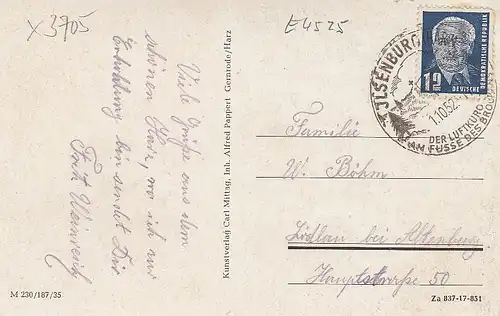 x 3705
E 4525
Viele Grüße aus dem
schönen Harz, wo ich zur
Erholung bin sendet Dir
Fritz Weinreich
Kunstverlag Carl Mittag, Inh. Alfred Pappert Gernrode/Harz
ILSENBURG
1.10.52
DER LUFTKURO
AM FUSSE DES BROCK
12
DEUTSCHE
DEMOKRATISCHE REPUBLIK
Familie
W. Böhm
bei Altenburg
Hauptstraße 50
M 230/187/35
Za 837-17-851